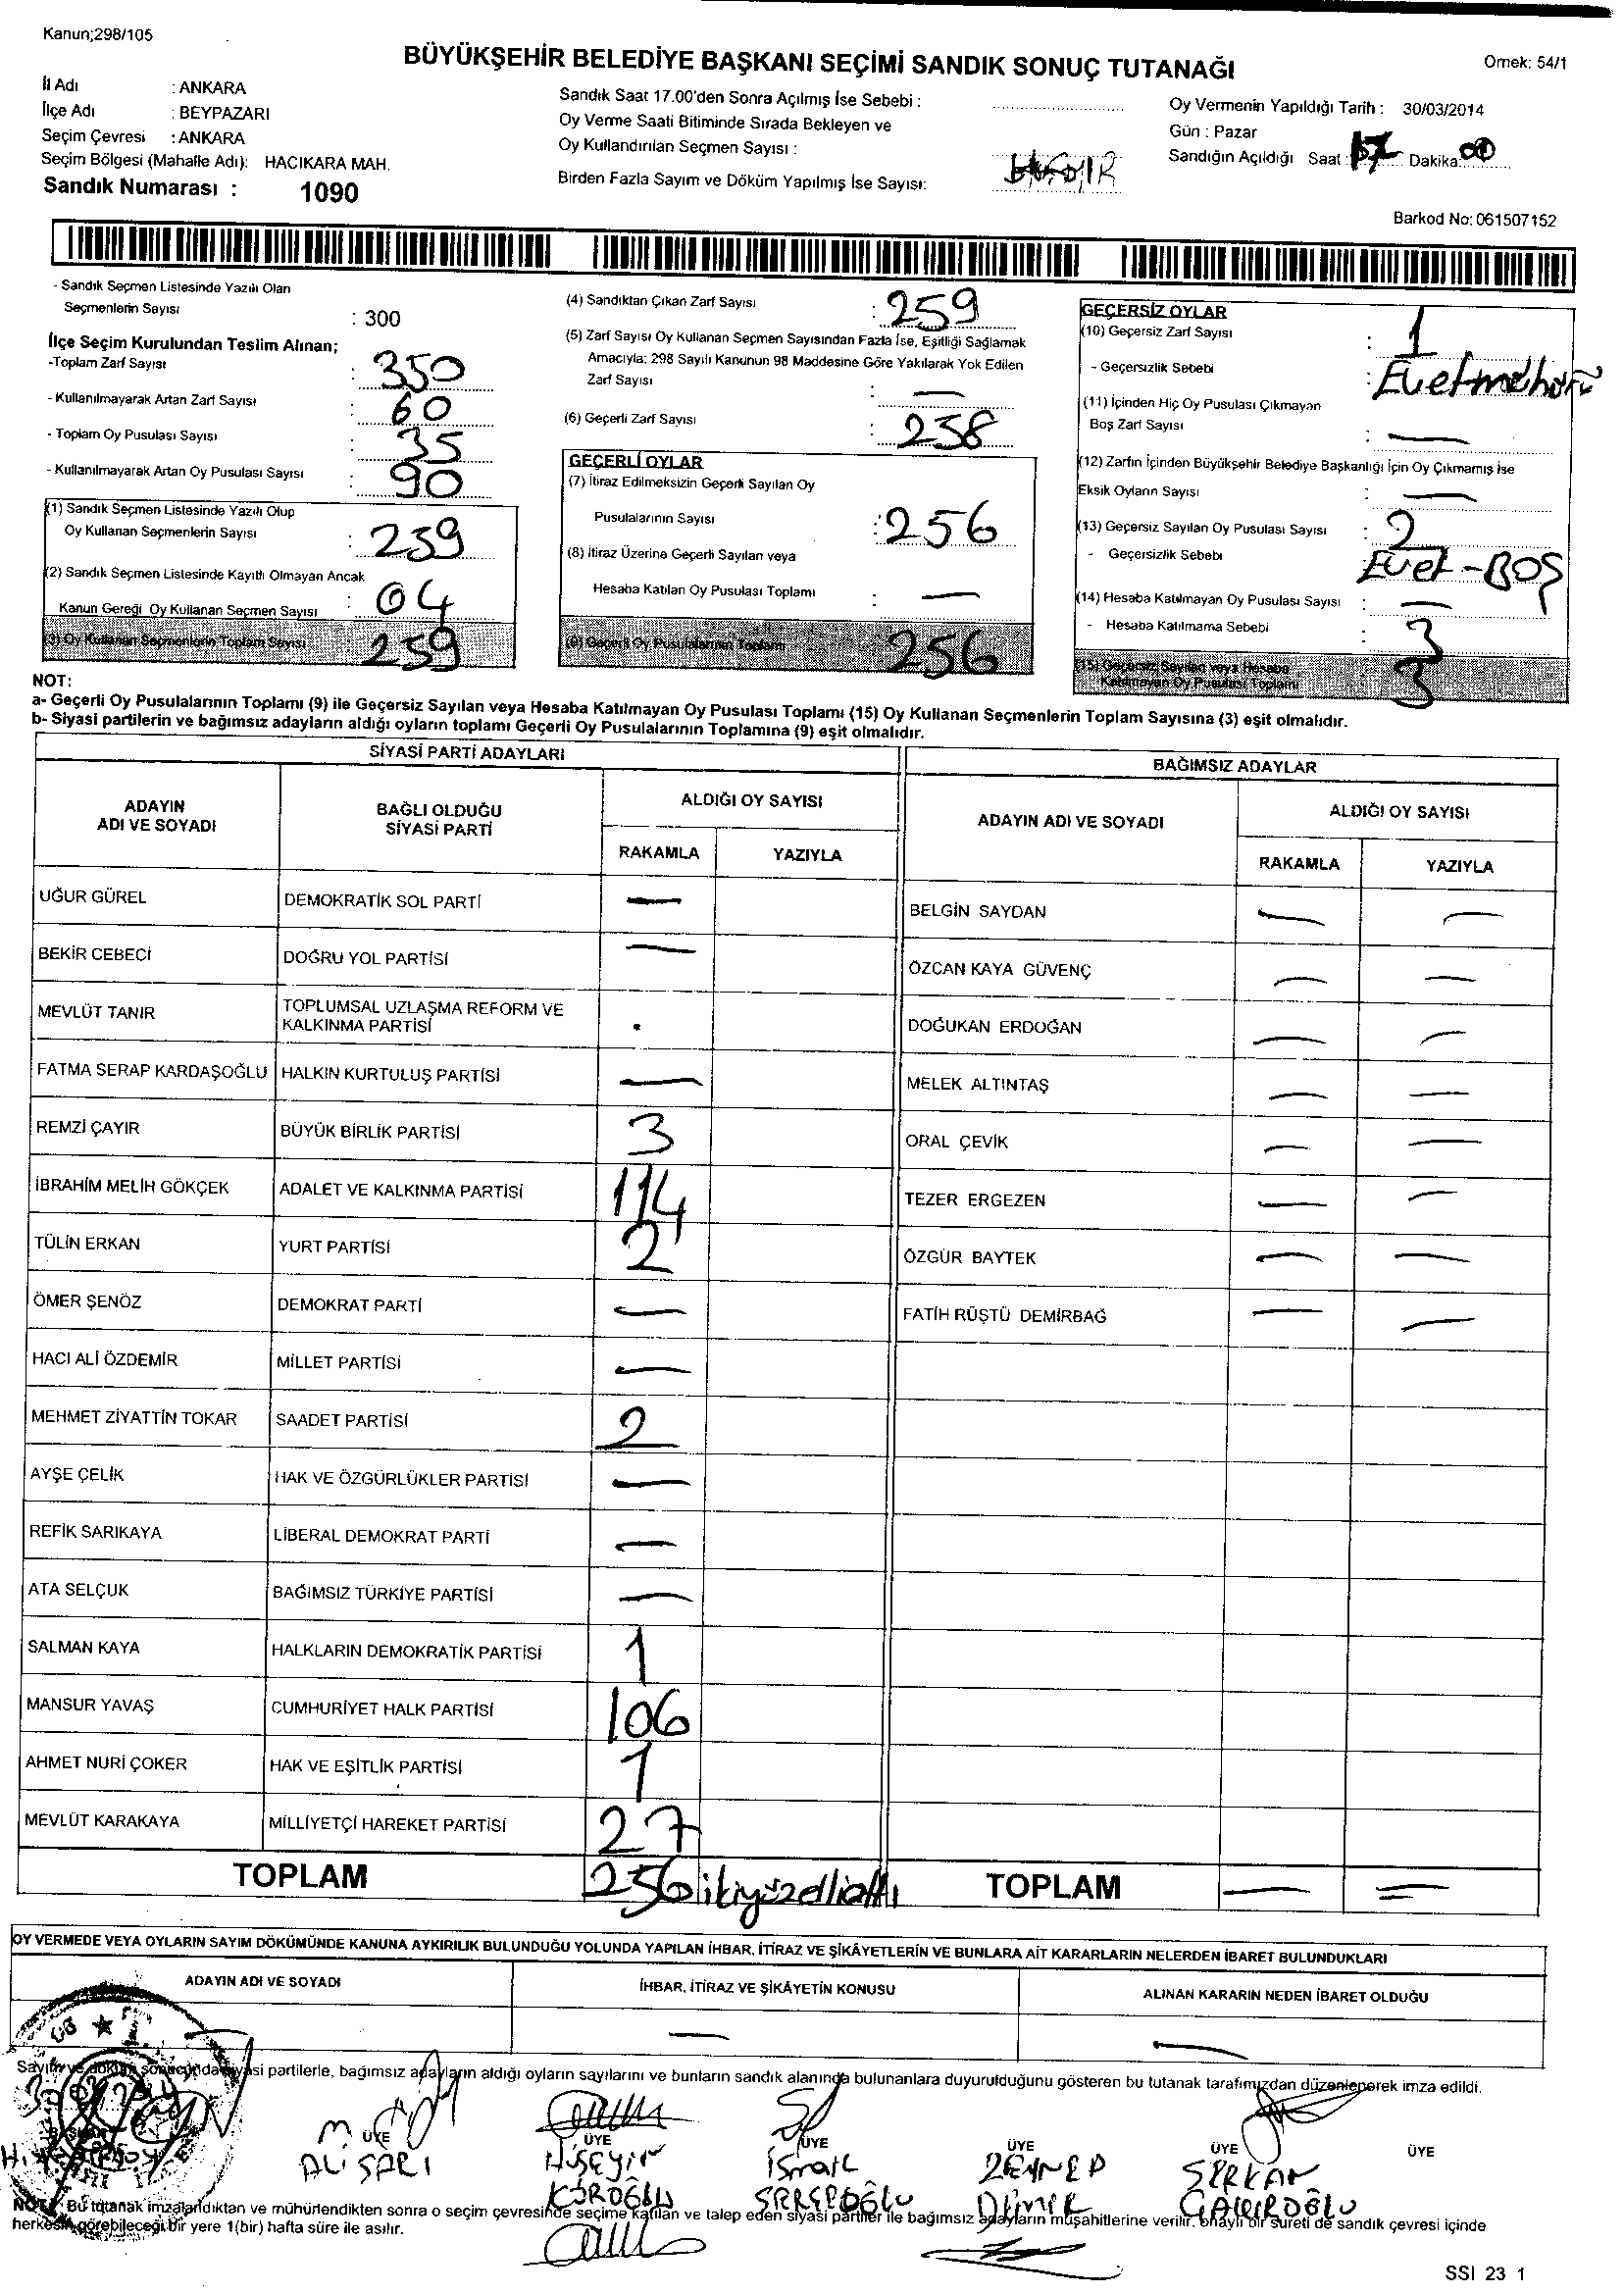 Kanun;298/105
BÜYÜKŞEHİR BELEDİYE BAŞKANI SEÇİMİ SANDIK SONUÇ TUTANAĞI
Örnek: 54/1
İl Adı : ANKARA
İlçe Adı : BEYPAZARI
Seçim Çevresi : ANKARA
Seçim Bölgesi (Mahalle Adı): HACIKARA MAH.
Sandık Numarası : 1090
Sandık Saat 17.00'den Sonra Açılmış İse Sebebi :
Oy Verme Saati Bitiminde Sırada Bekleyen ve
Oy Kullandırılan Seçmen Sayısı :
Birden Fazla Sayım ve Döküm Yapılmış İse Sayısı:
Oy Vermenin Yapıldığı Tarih : 30/03/2014
Gün : Pazar
Sandığın Açıldığı Saat : 17 Dakika 00
Barkod No: 061507152
- Sandık Seçmen Listesinde Yazılı Olan
Seçmenlerin Sayısı : 300
İlçe Seçim Kurulundan Teslim Alınan;
-Toplam Zarf Sayısı : 350
- Kullanılmayarak Artan Zarf Sayısı : 60
- Toplam Oy Pusulası Sayısı : 35
- Kullanılmayarak Artan Oy Pusulası Sayısı : 90
(1) Sandık Seçmen Listesinde Yazılı Olup
Oy Kullanan Seçmenlerin Sayısı : 259
(2) Sandık Seçmen Listesinde Kayıtlı Olmayan Ancak
Kanun Gereği Oy Kullanan Seçmen Sayısı : 04
(3) Oy Kullanan Seçmenlerin Toplam Sayısı 259
(4) Sandıktan Çıkan Zarf Sayısı : 259
(5) Zarf Sayısı Oy Kullanan Seçmen Sayısından Fazla İse, Eşitliği Sağlamak
Amacıyla; 298 Sayılı Kanunun 98 Maddesine Göre Yakılarak Yok Edilen
Zarf Sayısı : —
(6) Geçerli Zarf Sayısı : 258
GEÇERLİ OYLAR
(7) İtiraz Edilmeksizin Geçerli Sayılan Oy
Pusulalarının Sayısı : 256
(8) İtiraz Üzerine Geçerli Sayılan veya
Hesaba Katılan Oy Pusulası Toplamı : —
(9) Geçerli Oy Pusulalarının Toplamı 256
GEÇERSİZ OYLAR
(10) Geçersiz Zarf Sayısı : 1
- Geçersizlik Sebebi : Evet mührü
(11) İçinden Hiç Oy Pusulası Çıkmayan
Boş Zarf Sayısı : —
(12) Zarfın İçinden Büyükşehir Belediye Başkanlığı İçin Oy Çıkmamış ise
Eksik Oyların Sayısı : —
(13) Geçersiz Sayılan Oy Pusulası Sayısı : 2
- Geçersizlik Sebebi Evet - BOŞ
(14) Hesaba Katılmayan Oy Pusulası Sayısı : —
- Hesaba Katılmama Sebebi : 3
(15) Geçersiz Sayılan veya Hesaba
Katılmayan Oy Pusulası Toplamı 3
NOT:
a- Geçerli Oy Pusulalarının Toplamı (9) ile Geçersiz Sayılan veya Hesaba Katılmayan Oy Pusulası Toplamı (15) Oy Kullanan Seçmenlerin Toplam Sayısına (3) eşit olmalıdır.
b- Siyasi partilerin ve bağımsız adayların aldığı oyların toplamı Geçerli Oy Pusulalarının Toplamına (9) eşit olmalıdır.
SİYASİ PARTİ ADAYLARI
ADAYIN ADI VE SOYADI
BAĞLI OLDUĞU SİYASİ PARTİ
ALDIĞI OY SAYISI
RAKAMLA YAZIYLA
UĞUR GÜREL DEMOKRATİK SOL PARTİ —
BEKİR CEBECİ DOĞRU YOL PARTİSİ —
MEVLÜT TANIR TOPLUMSAL UZLAŞMA REFORM VE KALKINMA PARTİSİ .
FATMA SERAP KARDAŞOĞLU HALKIN KURTULUŞ PARTİSİ —
REMZİ ÇAYIR BÜYÜK BİRLİK PARTİSİ 3
İBRAHİM MELİH GÖKÇEK ADALET VE KALKINMA PARTİSİ 114
TÜLİN ERKAN YURT PARTİSİ 2
ÖMER ŞENÖZ DEMOKRAT PARTİ —
HACI ALİ ÖZDEMİR MİLLET PARTİSİ —
MEHMET ZİYATTİN TOKAR SAADET PARTİSİ 2
AYŞE ÇELİK HAK VE ÖZGÜRLÜKLER PARTİSİ —
REFİK SARIKAYA LİBERAL DEMOKRAT PARTİ —
ATA SELÇUK BAĞIMSIZ TÜRKİYE PARTİSİ —
SALMAN KAYA HALKLARIN DEMOKRATİK PARTİSİ 1
MANSUR YAVAŞ CUMHURİYET HALK PARTİSİ 106
AHMET NURİ ÇOKER HAK VE EŞİTLİK PARTİSİ 1
MEVLÜT KARAKAYA MİLLİYETÇİ HAREKET PARTİSİ 27
TOPLAM 256 ikiyüzelli altı
BAĞIMSIZ ADAYLAR
ADAYIN ADI VE SOYADI
ALDIĞI OY SAYISI
RAKAMLA YAZIYLA
BELGİN SAYDAN — —
ÖZCAN KAYA GÜVENÇ — —
DOĞUKAN ERDOĞAN — —
MELEK ALTINTAŞ — —
ORAL ÇEVİK — —
TEZER ERGEZEN — —
ÖZGÜR BAYTEK — —
FATİH RÜŞTÜ DEMİRBAĞ — —
TOPLAM — =
OY VERMEDE VEYA OYLARIN SAYIM DÖKÜMÜNDE KANUNA AYKIRILIK BULUNDUĞU YOLUNDA YAPILAN İHBAR, İTİRAZ VE ŞİKÂYETLERİN VE BUNLARA AİT KARARLARIN NELERDEN İBARET BULUNDUKLARI
ADAYIN ADI VE SOYADI
İHBAR, İTİRAZ VE ŞİKÂYETİN KONUSU
ALINAN KARARIN NEDEN İBARET OLDUĞU
— — —
Sayım ve döküm sonucunda siyasi partilerle, bağımsız adayların aldığı oyların sayılarını ve bunların sandık alanında bulunanlara duyurulduğunu gösteren bu tutanak tarafımızdan düzenlenerek imza edildi.
ÜYE ÜYE ÜYE ÜYE ÜYE ÜYE
ALİ SARI
HÜSEYİN KÖROĞLU
İSMAİL
ZEYNEP DEMİR
SERKAN
NOT: Bu tutanak imzalandıktan ve mühürlendikten sonra o seçim çevresinde seçime katılan ve talep eden siyasi partiler ile bağımsız adayların müşahitlerine verilir, onaylı bir sureti de sandık çevresi içinde
herkesin görebileceği bir yere 1(bir) hafta süre ile asılır.
SSI 23 1